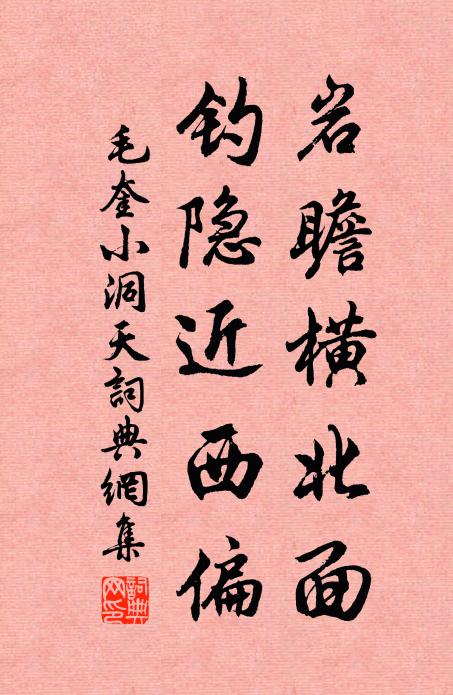 岩瞻横北面
钓隐近西偏
毛奎小洞天詞典網集
詞典網印